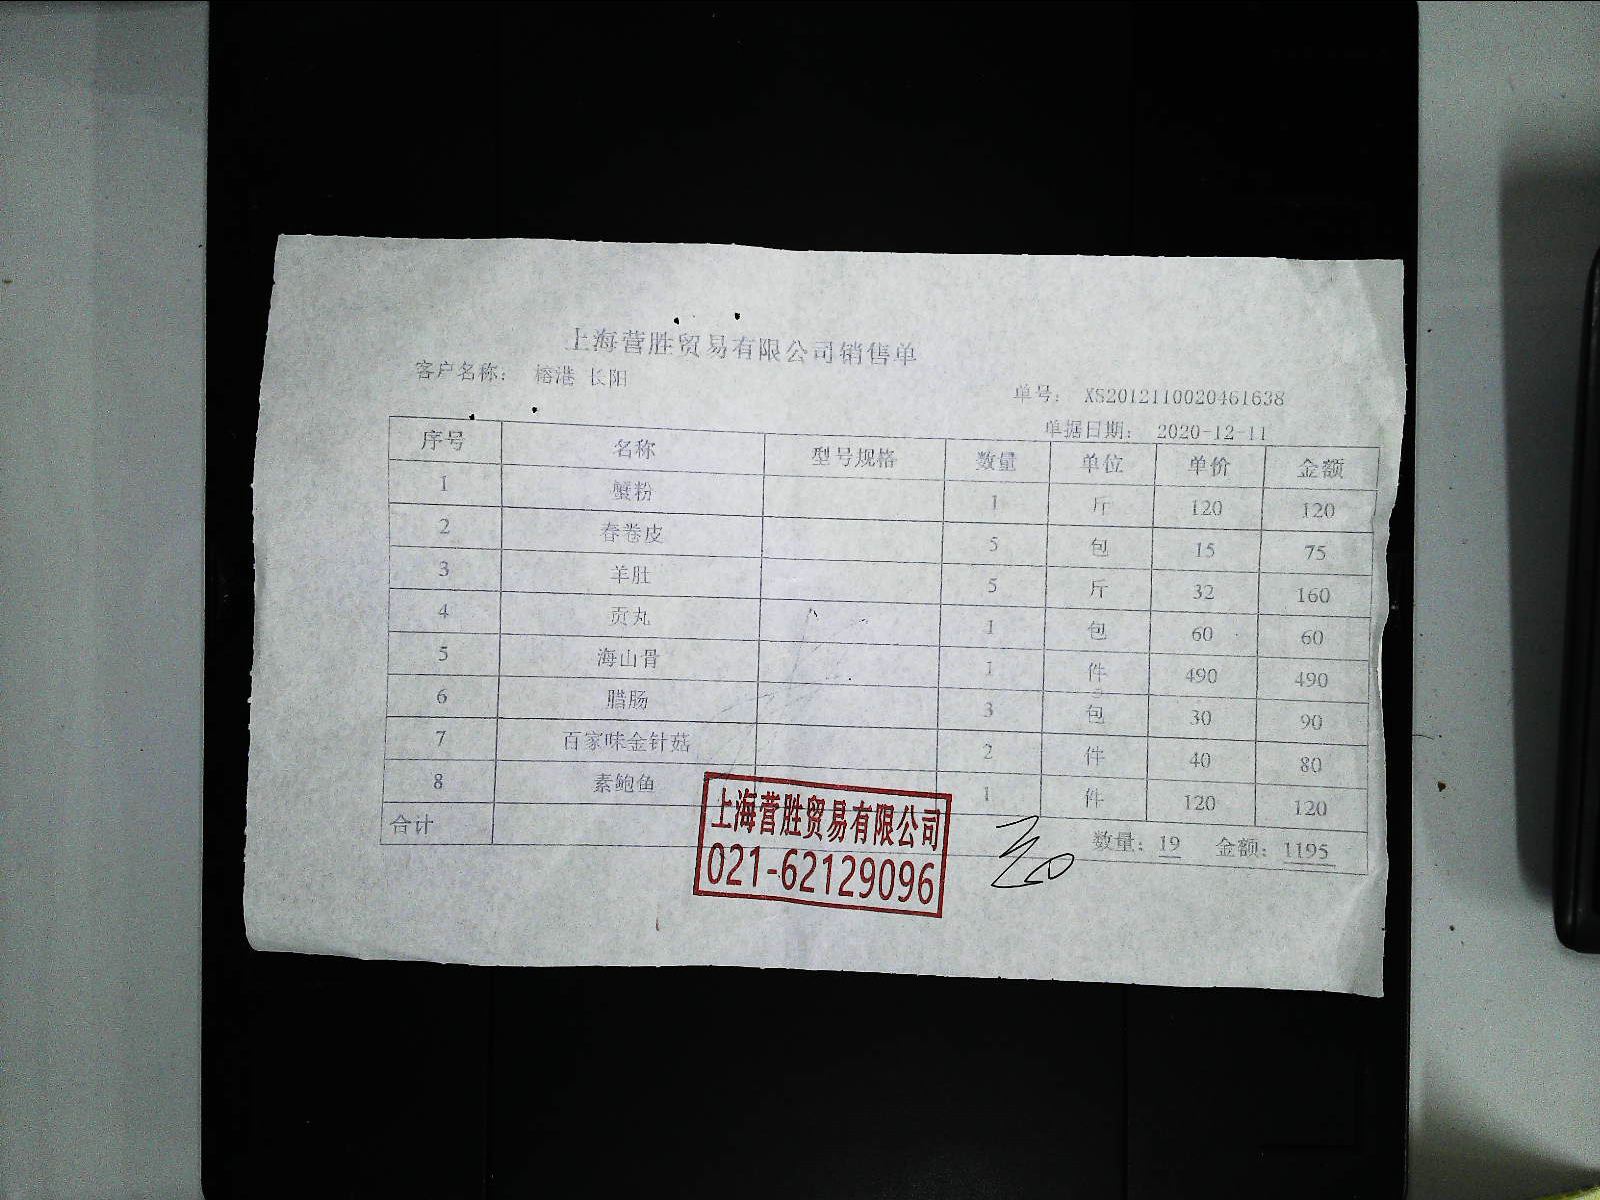 上海营胜贸易有限公司销售单
客户名称： 榕港 长阳
单号： XS2012110020461638
单据日期： 2020-12-11
序号 名称 型号规格 数量 单位 单价 金额
1 蟹粉 1 斤 120 120
2 春卷皮 5 包 15 75
3 羊肚 5 斤 32 160
4 贡丸 1 包 60 60
5 海山骨 1 件 490 490
6 腊肠 3 包 30 90
7 百家味金针菇 2 件 40 80
8 素鲍鱼 1 件 120 120
合计 数量：19 金额：1195
上海营胜贸易有限公司
021-62129096